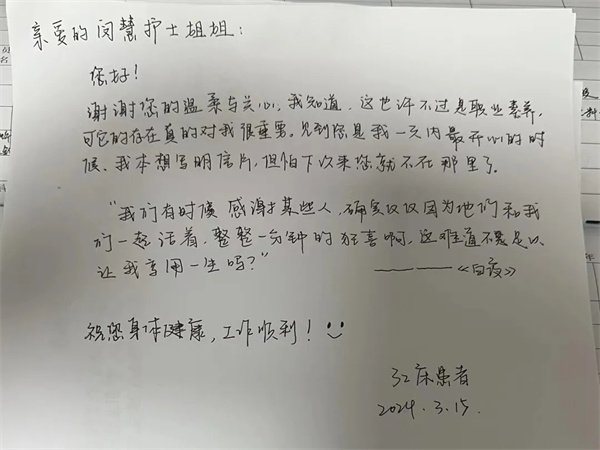 亲爱的闵慧护士姐姐:
您好!
谢谢您的温柔与关心,我知道,这也许不过是职业素养,
可它的存在真的对我很重要。见到您是我一天内最开心的时
候、我本想写明信片,但怕下次来您就不在那里了。
“我们有时候感谢某些人,确实仅仅因为他们和我
们一起活着,整整一分钟的狂喜啊,这难道不是足以
让我享用一生吗?”
——— —《白夜》
祝您身体健康,工作顺利!
32床患者
2024.3.15.